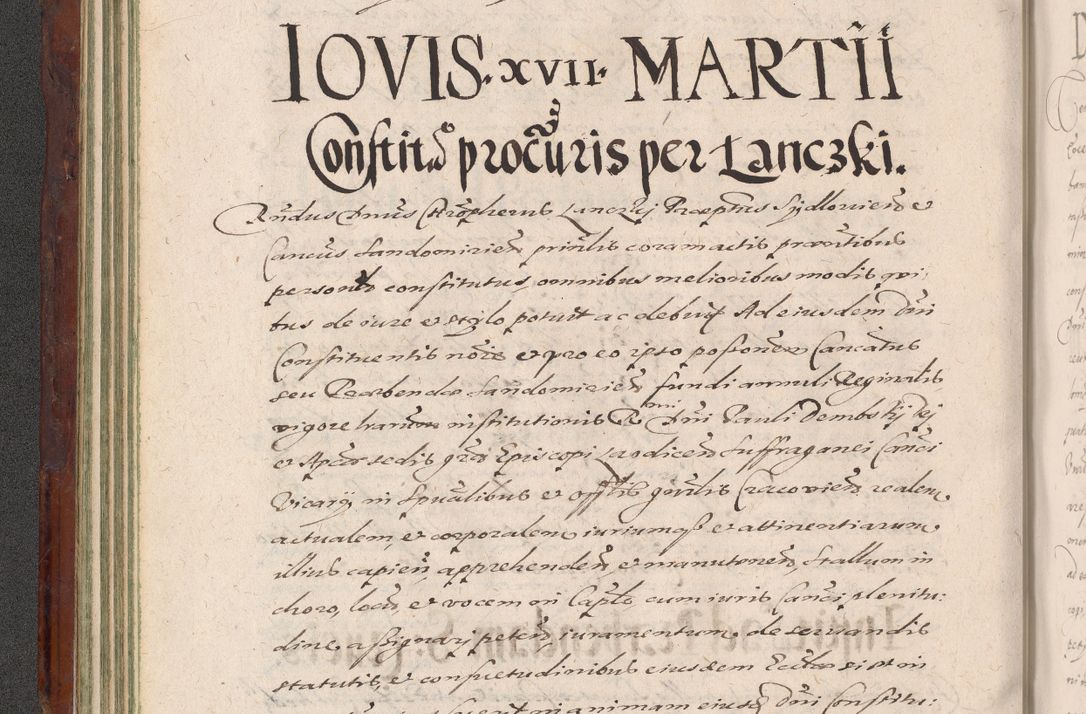 IOVIS · XVII · MARTII
Constit&o procuris per Lanczki.
Rndus Dnus Chrõpherus Lanczkij Præptus Sydlovien et
Cancus Sandomirien prinlis coram actis prantibus
personlr constitutus, omnibus melioribus modis qui:
bus de iure et stylo potuit ac debuit Ad eiusdem Dni
Constituentis noie et pro eo ipso possonem Cancatus
seu Præbendæ Sandomirien fundi annuli Reginalis
vigore harum institutionis Rmi Dni Pauli Dembskij Dej
et Apcæ sedis gra Episcopi Laodicen Suffraganei Canci
Vicarij in Spualibus et Offlis gnlis Cracovien realem,
actualem, et corporalem iuriumqß et attinentiarum
illius capien, apprehenden et manutenen, stallum in
choro, locu, et vocem in Caplo cum iuris Canci plenitu:
dine, assignarj peten, iuramentum de servandis
statutis, et consuetudinibus eiusdem Ecclæ
in animam eiusd Dni Constitu: